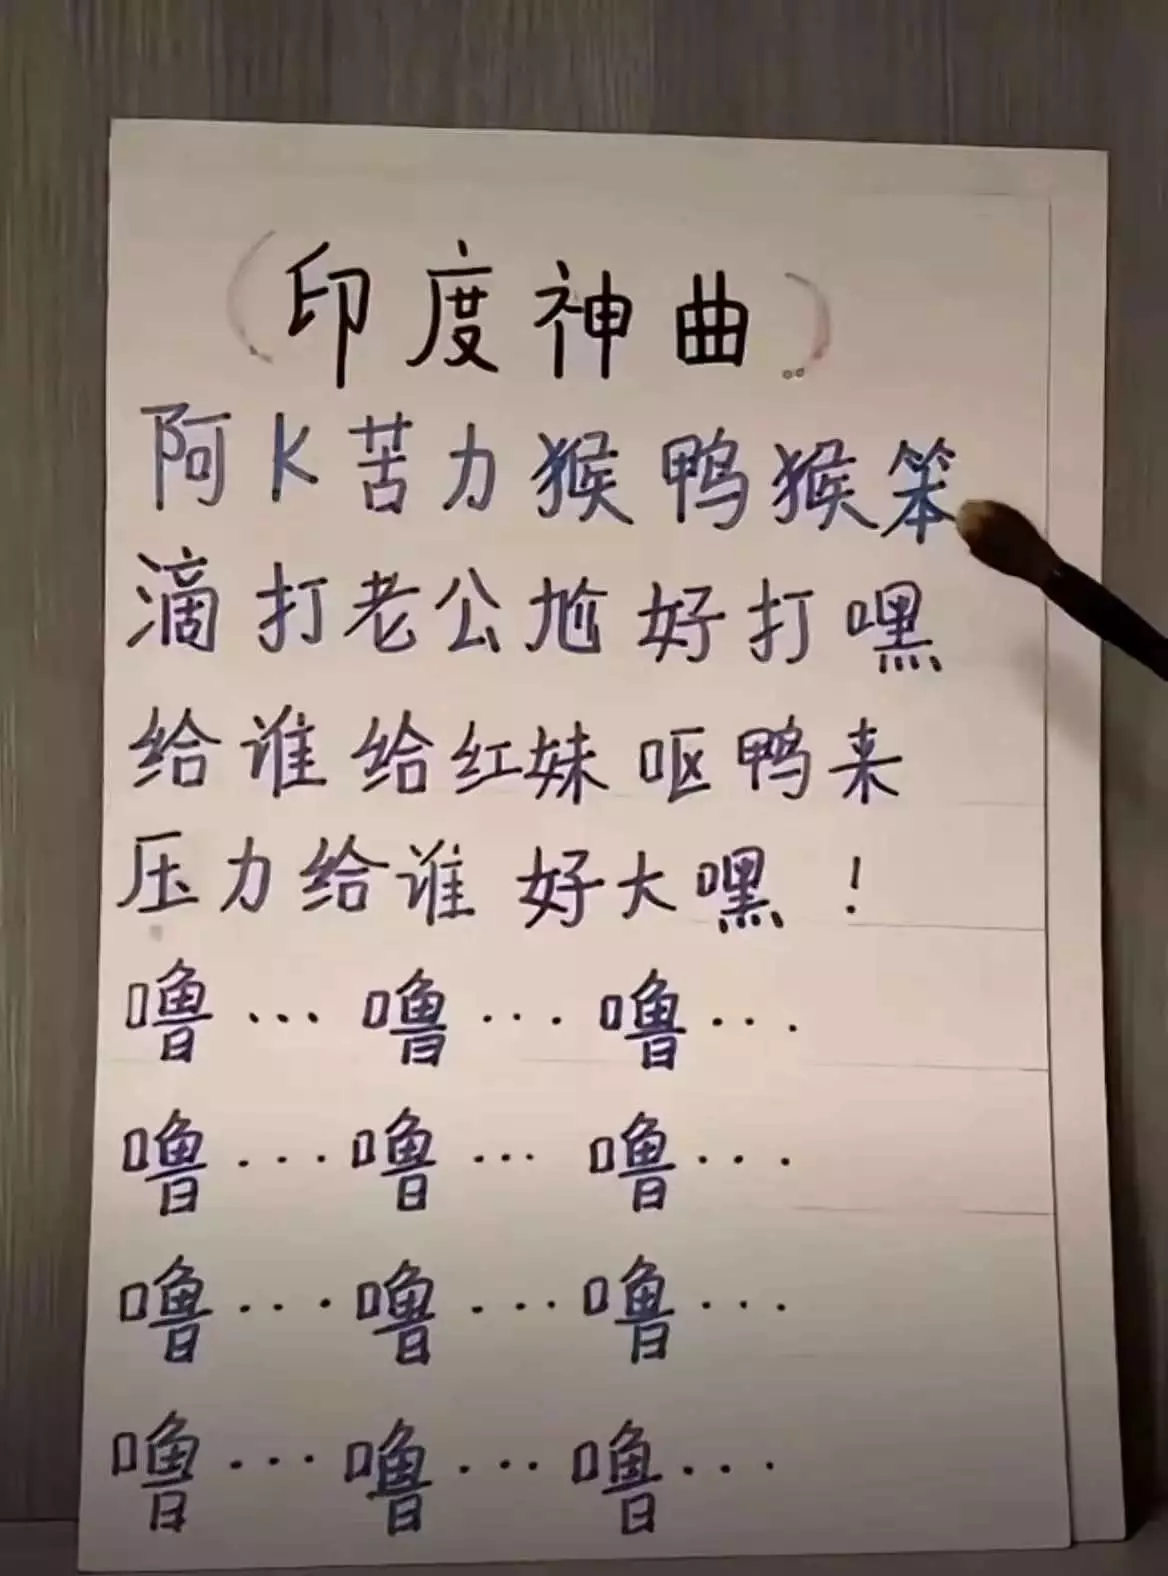 (印度神曲)
阿K苦力猴鸭猴笨
滴打老公尬好打嘿
给谁给红妹呕鸭来
压力给谁好大嘿！
噜…噜…噜…
噜…噜…噜…
噜…噜…噜…
噜…噜…噜…